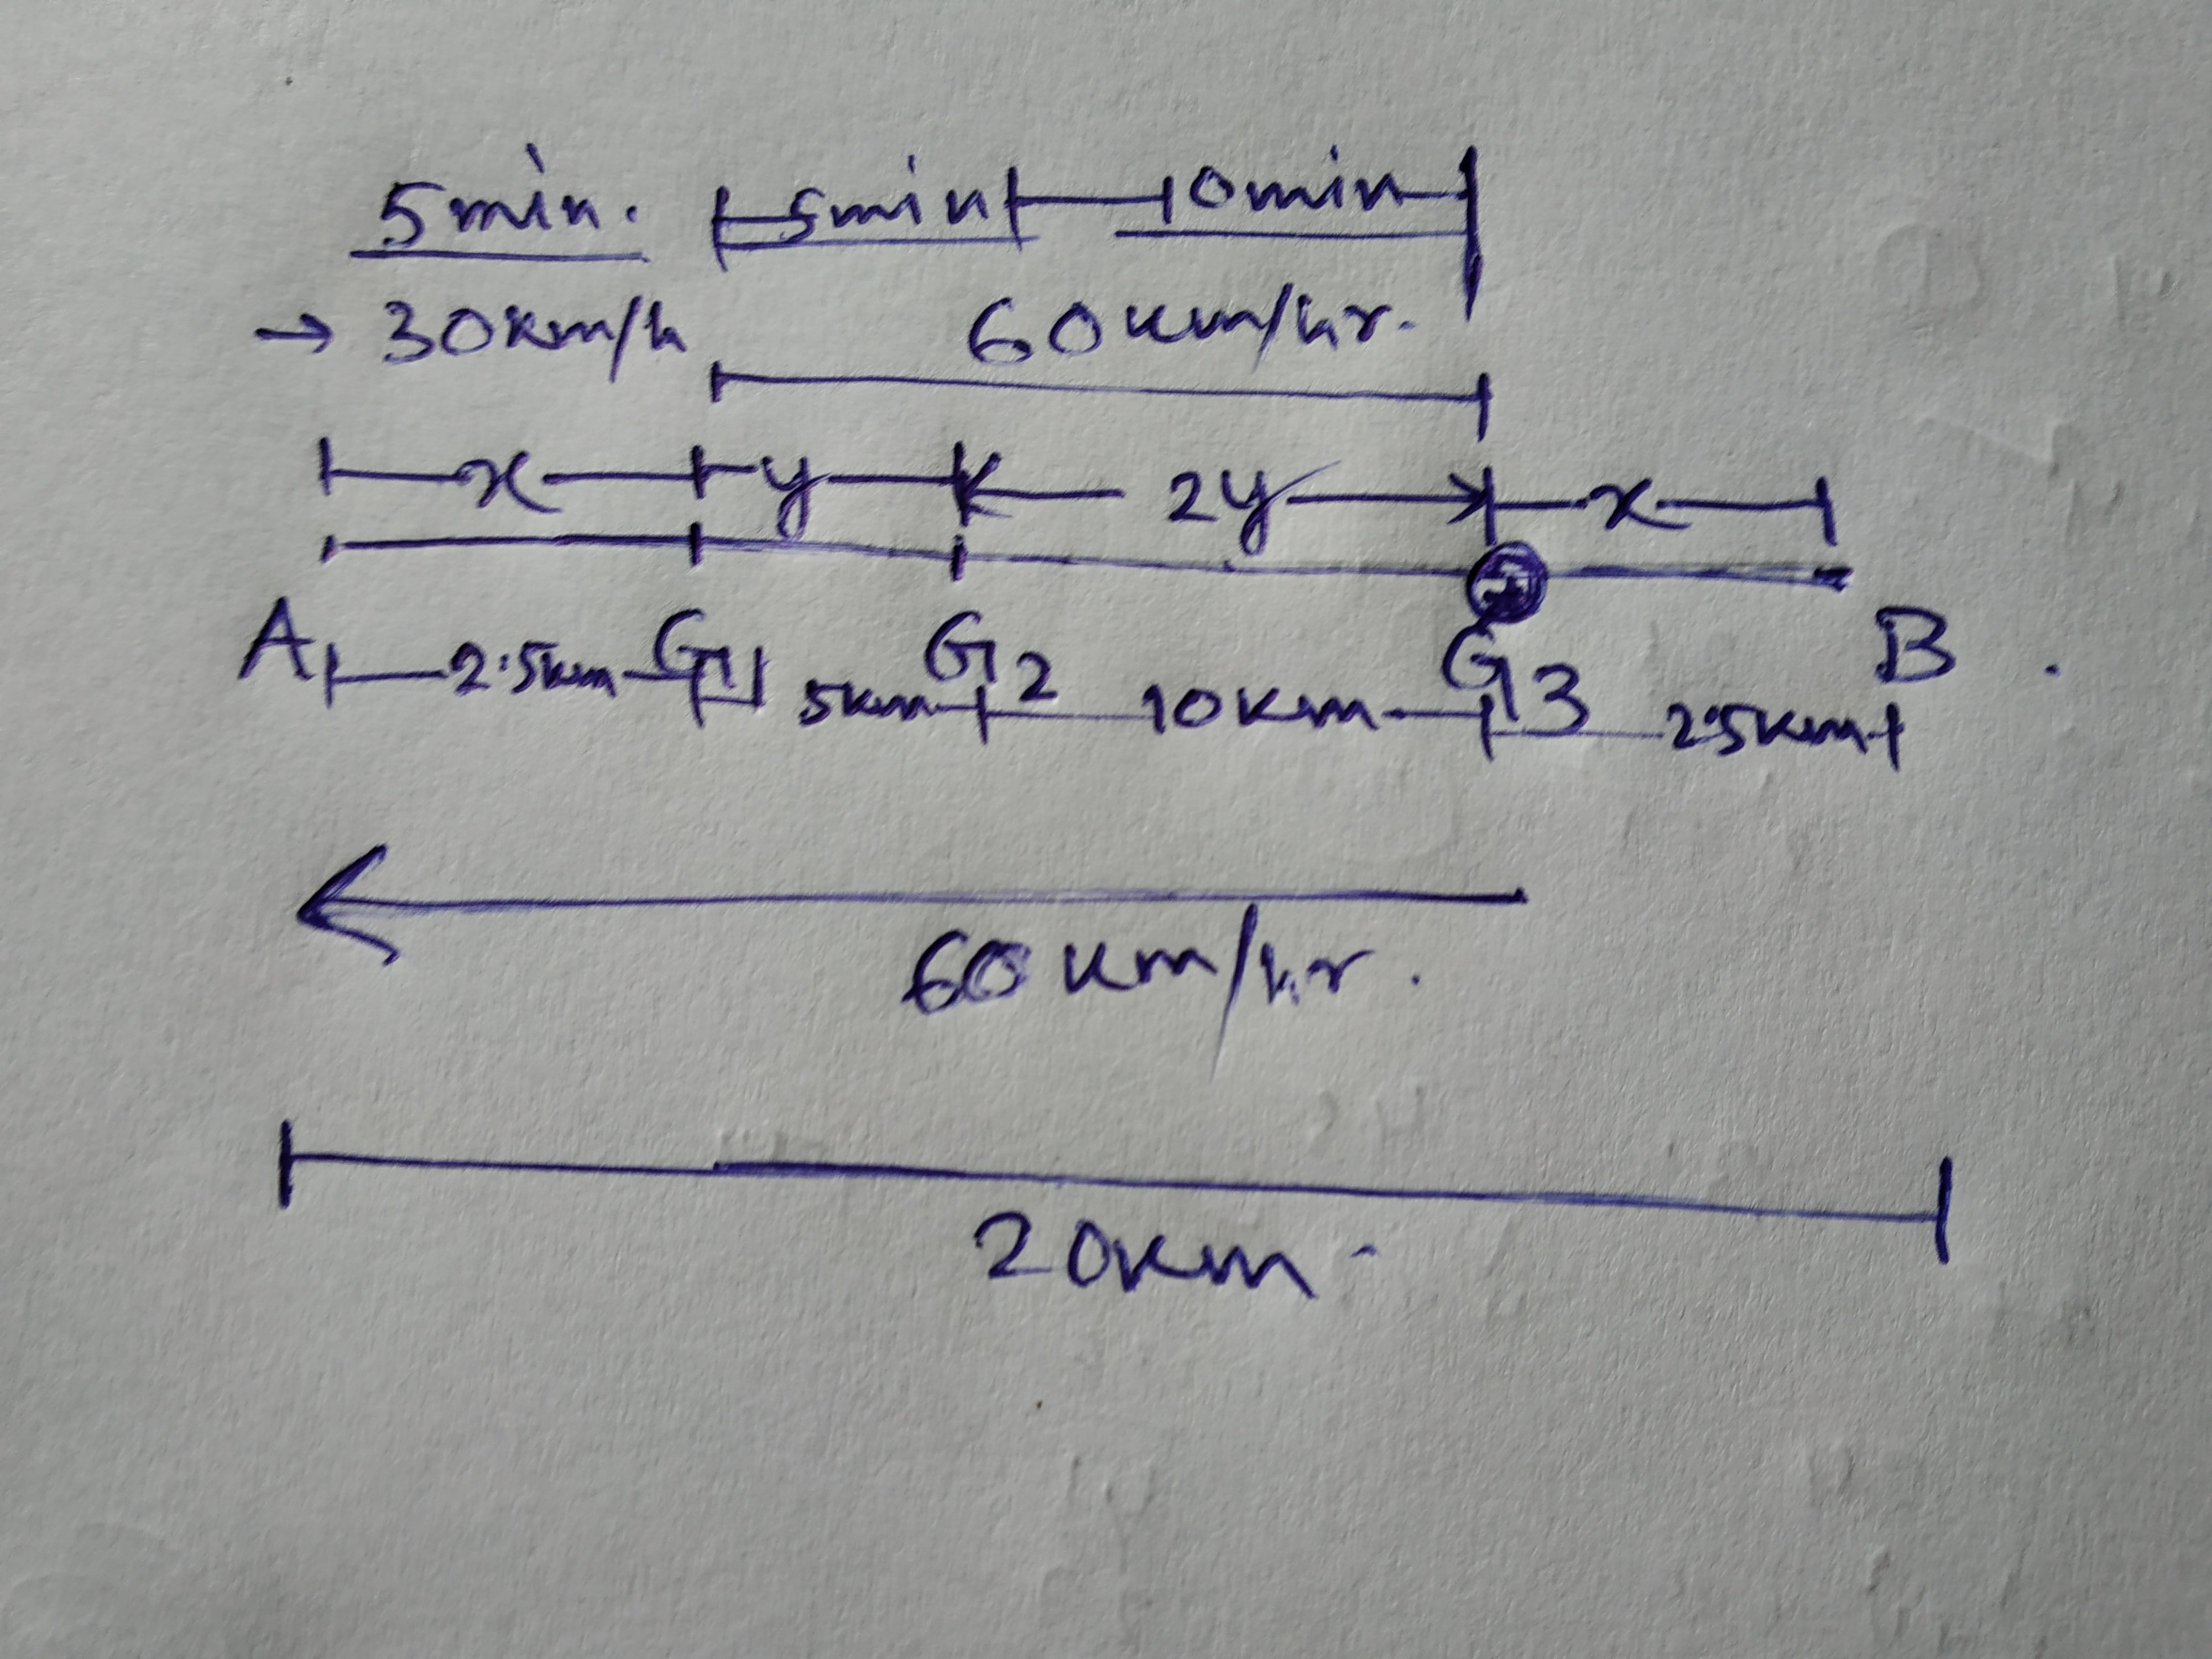 5min. 5min 10min
→ 30km/h 60km/hr.
x y 2y x
A G1 G2 G3 B
2.5km 5km 10km 2.5km
60km/hr.
20km